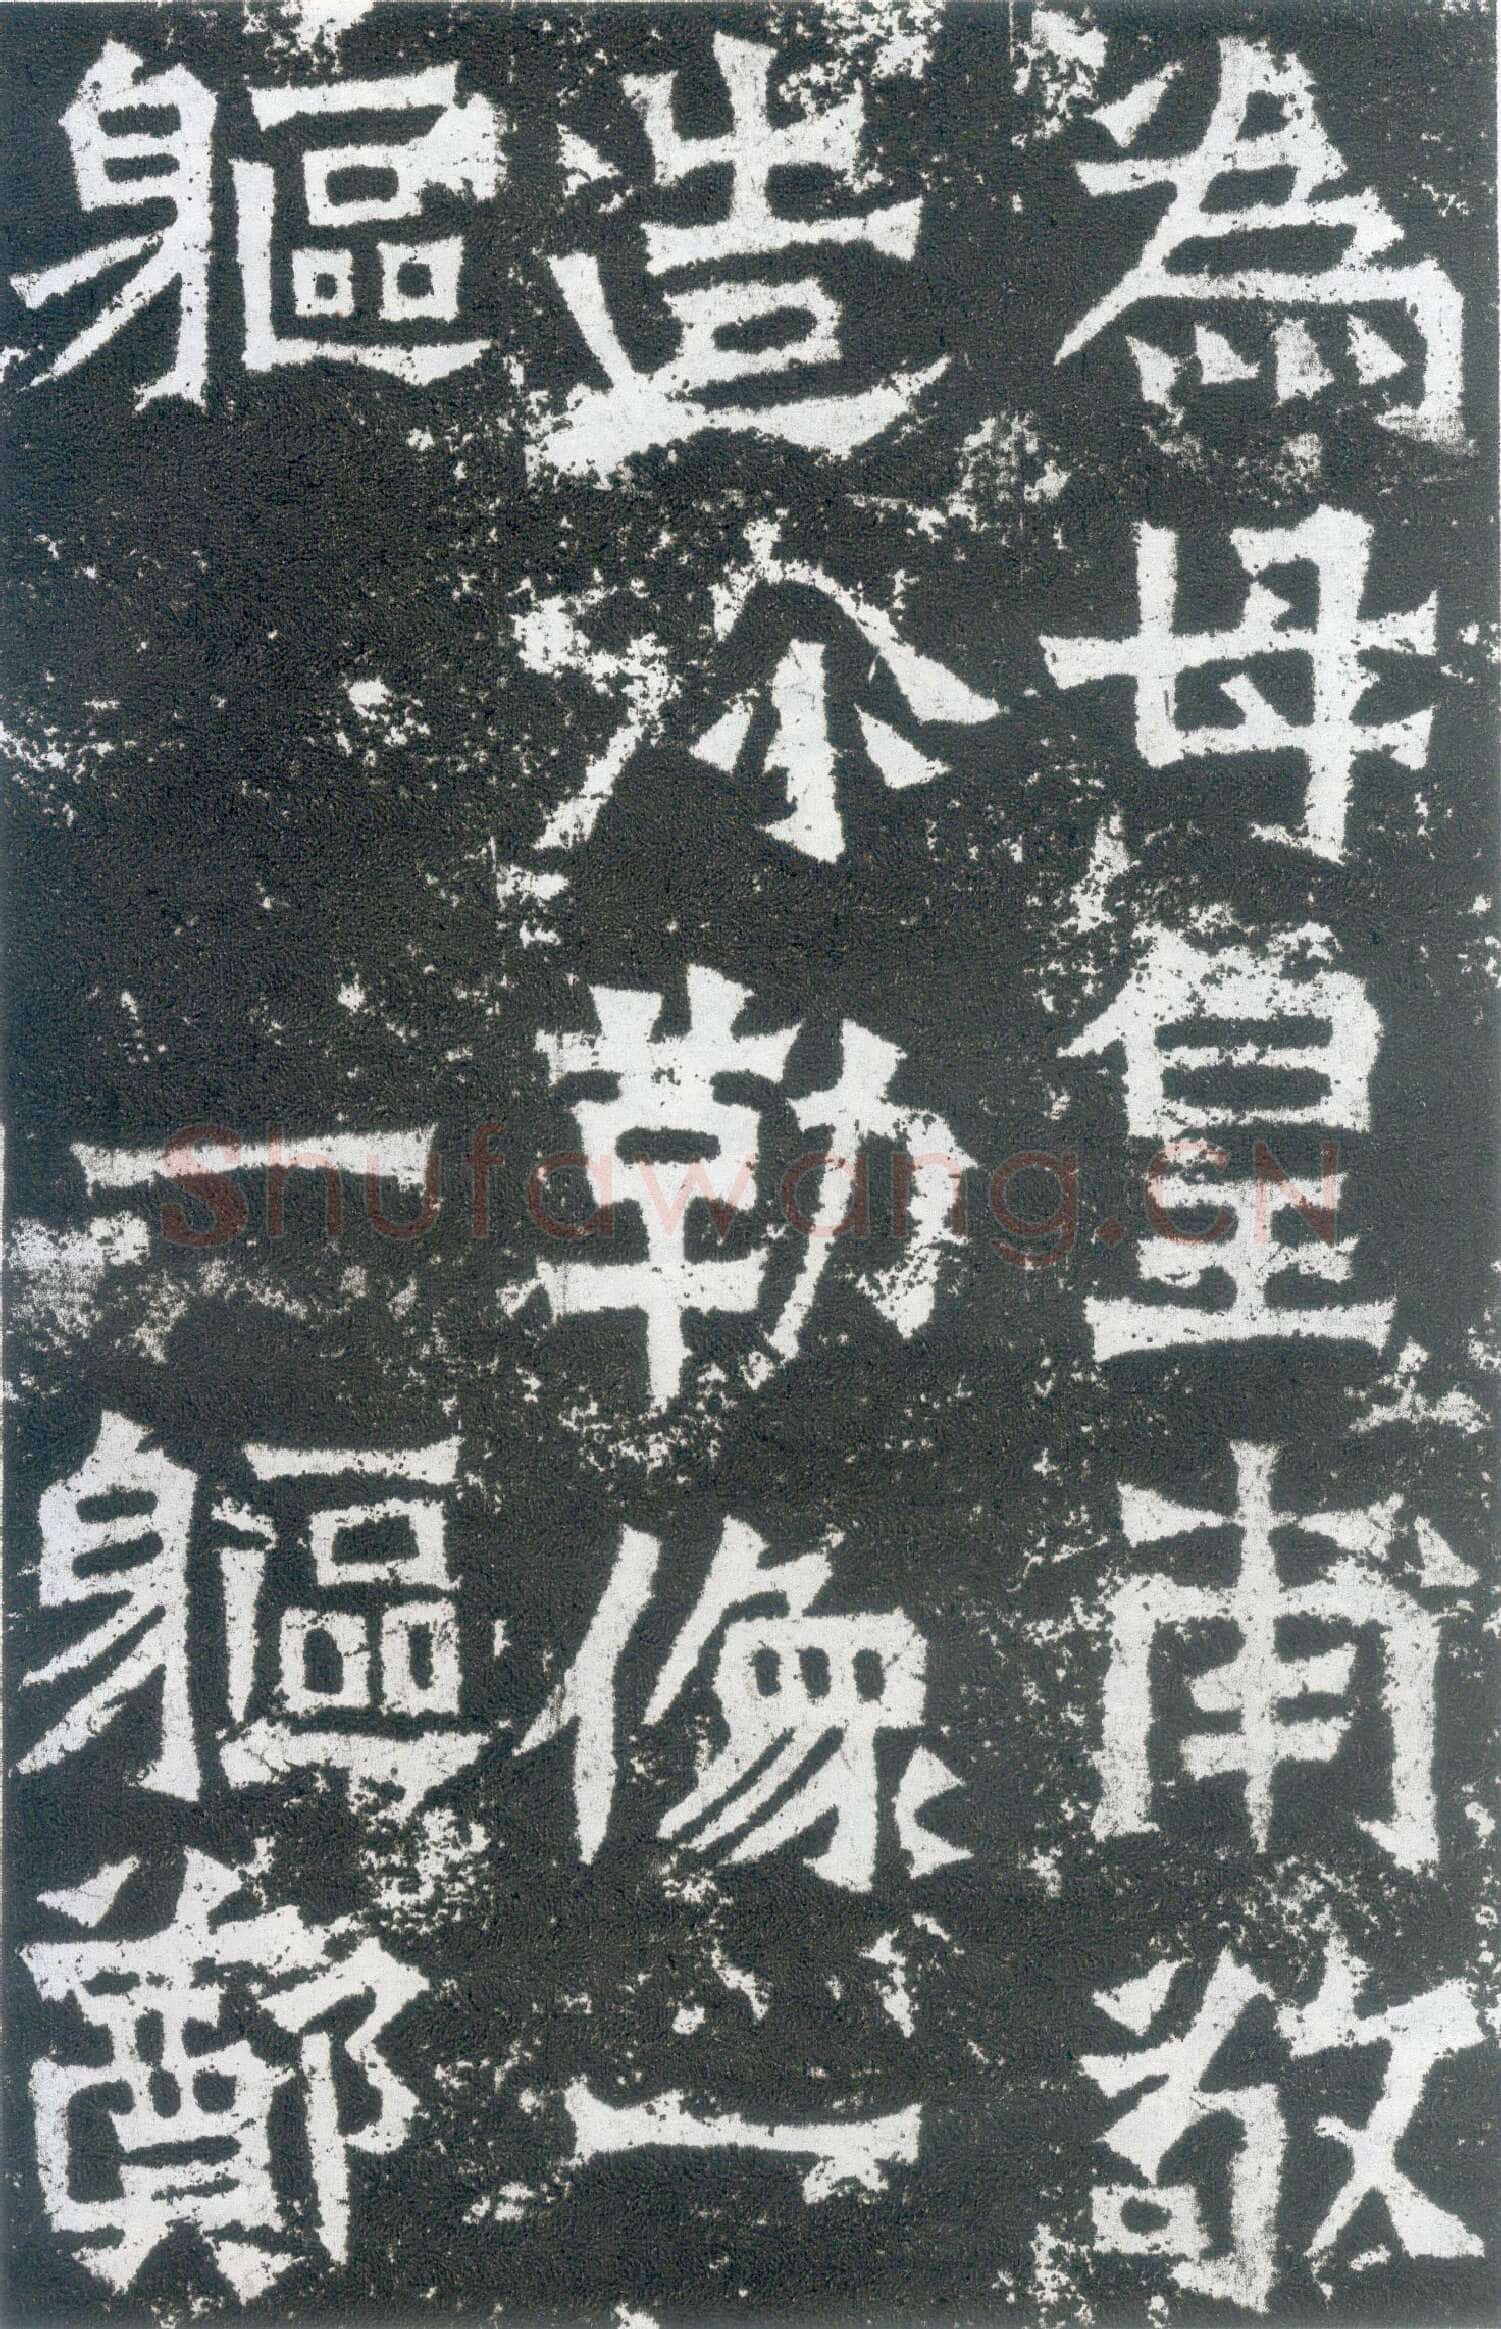 為母皇甫敬
造弥勒像一
軀 一軀鄭
Shufawang.CN